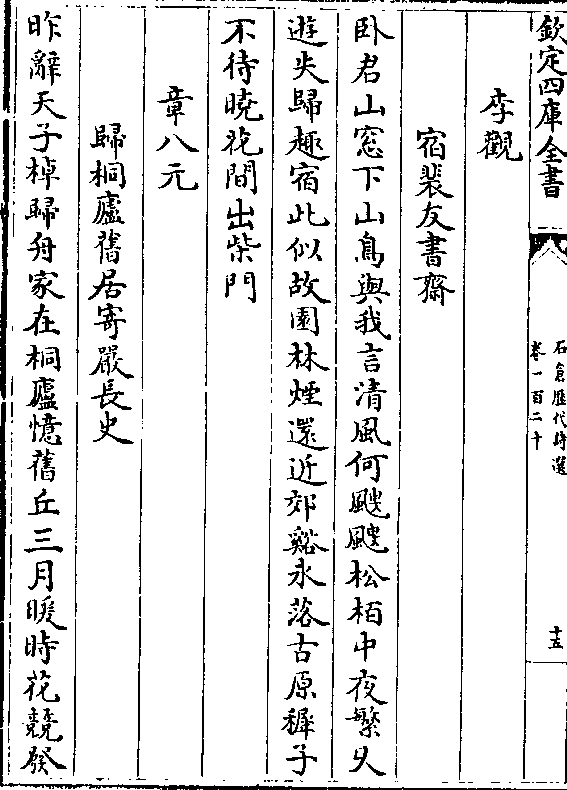 欽定四庫全書
石倉歷代詩選
卷一百二十
十五
李觀
宿裴友書齋
卧君山窓下山鳥與我言清風何颼飀松栢中夜繁久
遊失歸趣宿此似故園林煙還近郊谿永落古原穉子
不待曉花間出柴門
章八元
歸桐廬舊居寄嚴長史
昨辭天子棹歸舟家在桐廬憶舊丘三月暖時花競發